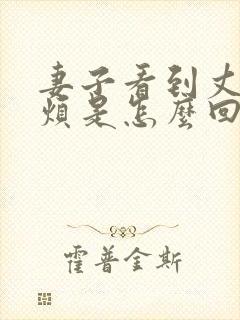 妻子看到丈
烦是怎麼回
霍普金斯